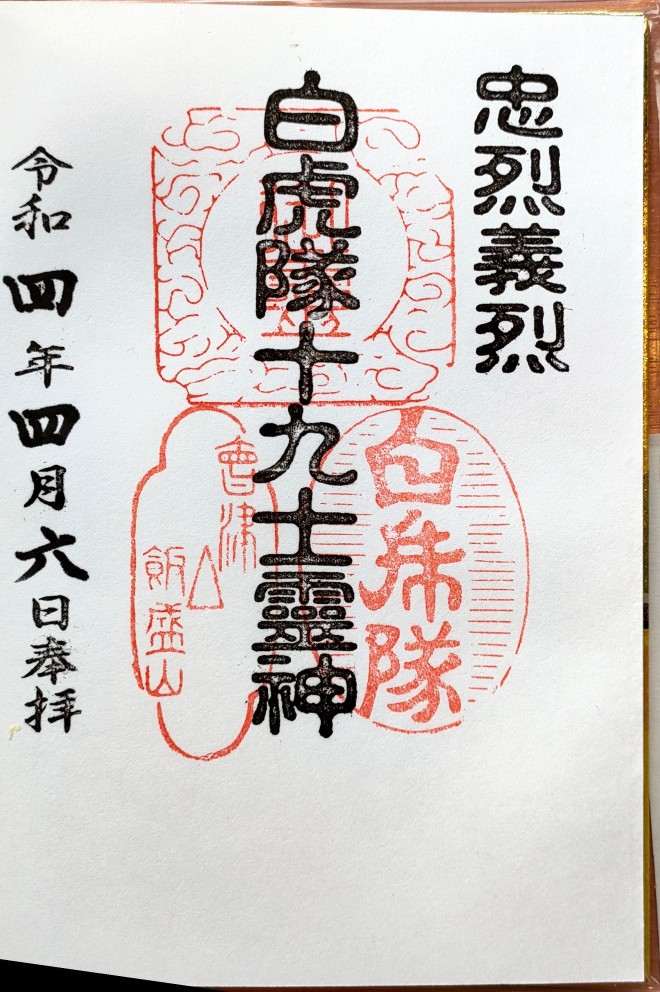 忠烈義烈
白虎隊十九士霊神
白虎隊
會津
飯盛山
令和四年四月六日奉拝